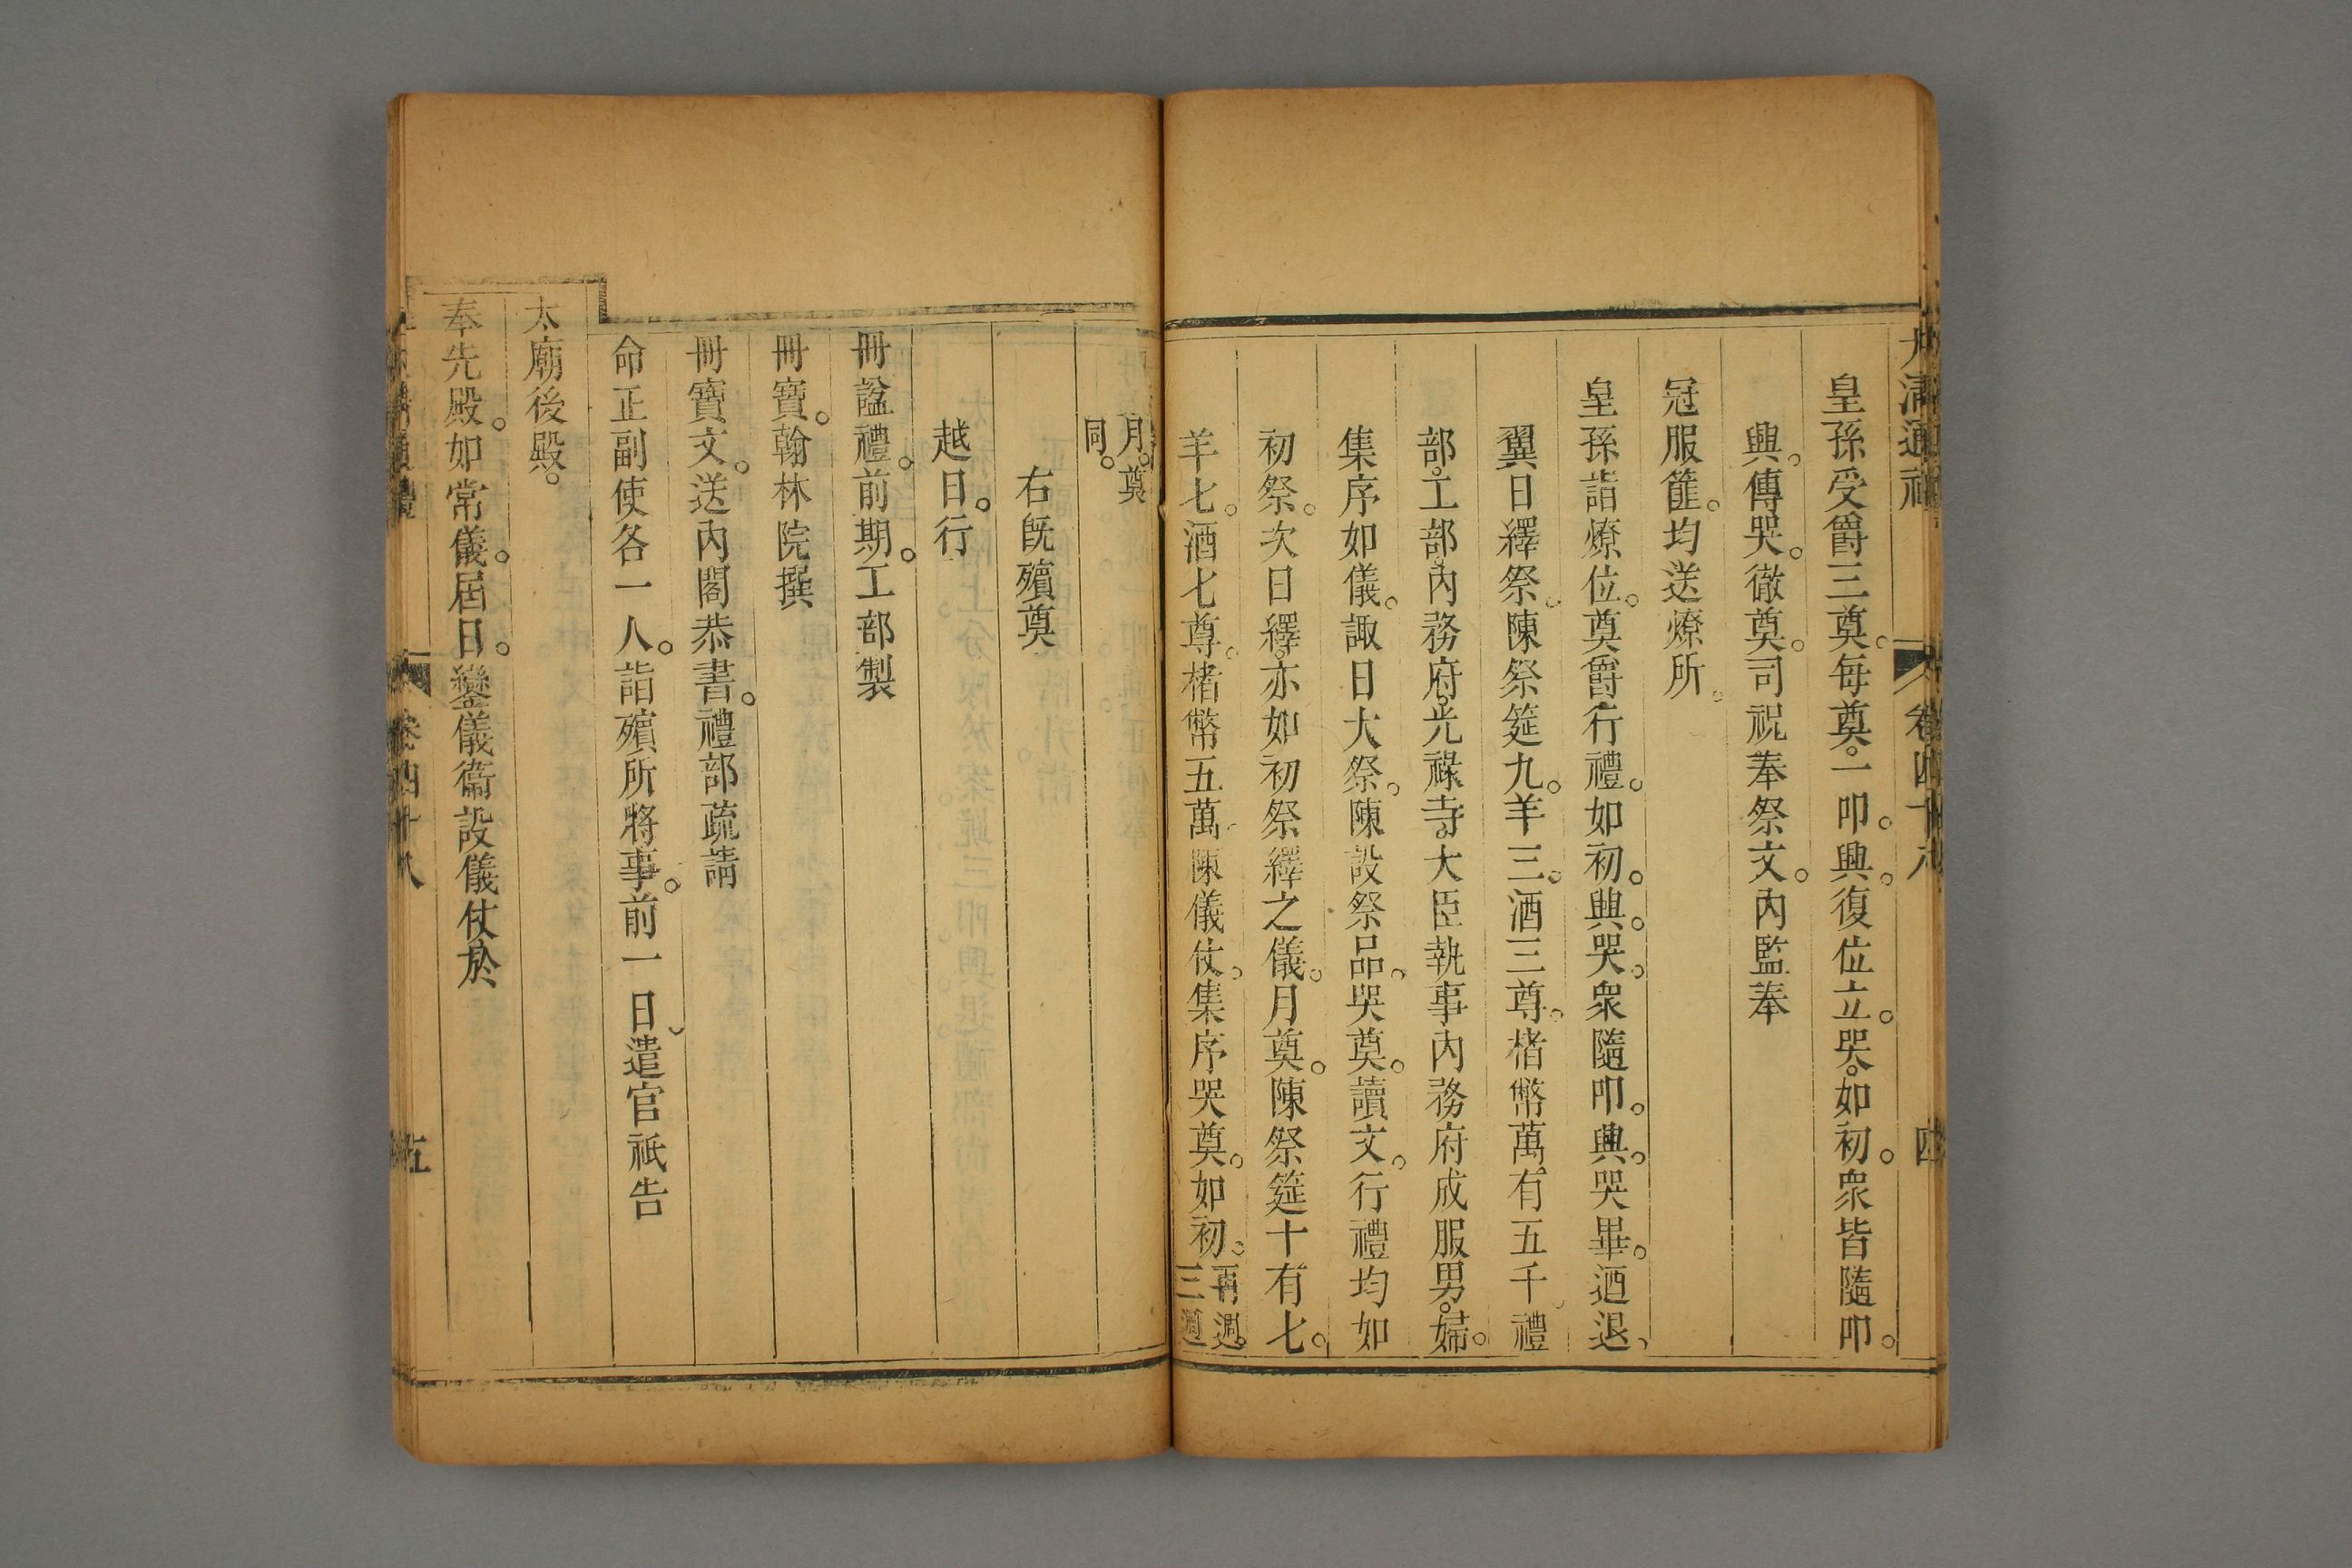 大清通禮 卷四十八 四
皇孫受爵三奠。每奠。一叩。興。復位立。哭。如初。衆皆隨叩。
興。傳哭。徹奠。司祝奉祭文。內監奉
冠服篚。均送燎所。
皇孫詣燎位。奠爵行禮。如初。興。哭。衆隨叩。興。哭畢。迺退。
翼日繹祭。陳祭筵九。羊三。酒三尊。楮幣萬有五千。禮
部。工部。內務府。光祿寺。大臣執事內務府成服男。婦。
集序如儀。諏日大祭。陳設祭品。哭奠。讀文。行禮均如
初祭。次日繹。亦如初祭繹之儀。月奠。陳祭筵十有七。
羊七。酒七尊。楮幣五萬。陳儀仗。集序哭奠。如初。再週。三週
月。奠同。
右既殯奠
越日。行
冊諡禮。前期。工部製
冊寶。翰林院撰
冊寶文。送內閣恭書。禮部疏請
命正副使各一人。詣殯所將事。前一日遣官祇告
太廟後殿。
奉先殿。如常儀。屆日。鑾儀衞設儀仗於
卷四十八 五